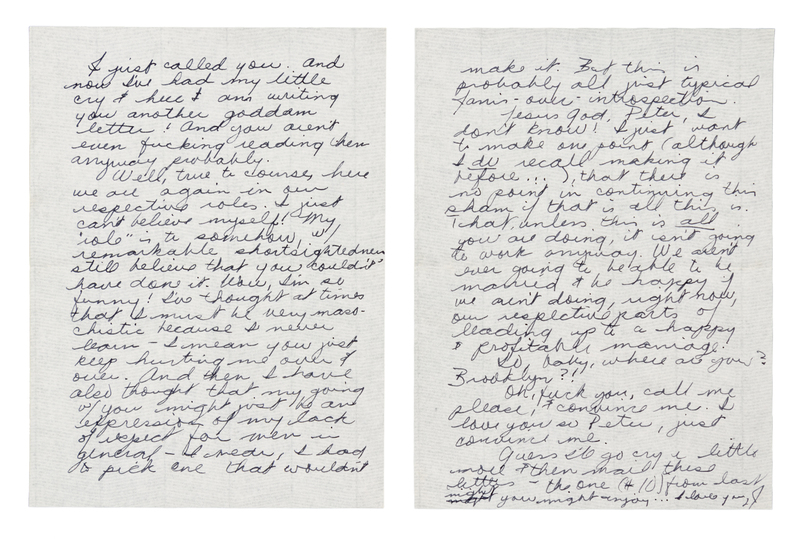 I just called you. And
now I've had my little
cry & here I am writing
you another goddam
letter! And you aren't
even fucking reading them
anyway probably.
Well, true to course, here
we are again in our
respective roles. I just
can't believe myself! My
"role" is to somehow, w/
remarkable shortsightedness
still believe that you "couldn't"
have done it. Wow, I'm so
funny! I've thought at times
that I must be very maso-
chistic because I never
learn - I mean you just
keep hurting me over &
over. And then I have
also thought that my going
w/ you might just be an
expression of my lack
of respect for men in
general - I mean, I had
to pick one that wouldn't
make it. But this is
probably all just typical
Janis-over-introspection.
Jesus God, Peter, I
don't know! I just want
to make one point (although
I do recall making it
before...), that there is
no point in continuing this
sham if that is all this is.
That, unless this is all
you are doing, it isn't going
to work anyway. We aren't
ever going to be able to be
married & be happy if
we ain't doing, right now,
our respective parts of
leading up to a happy
& profitable marriage.
So, baby, where are you?
Brooklyn?!!
Oh, fuck you, call me
please, & convince me. I
love you so Peter, just
convince me.
Guess I'll go cry a little
more & then mail these
letters - the one (# 10) from last
might you might enjoy... I love you,